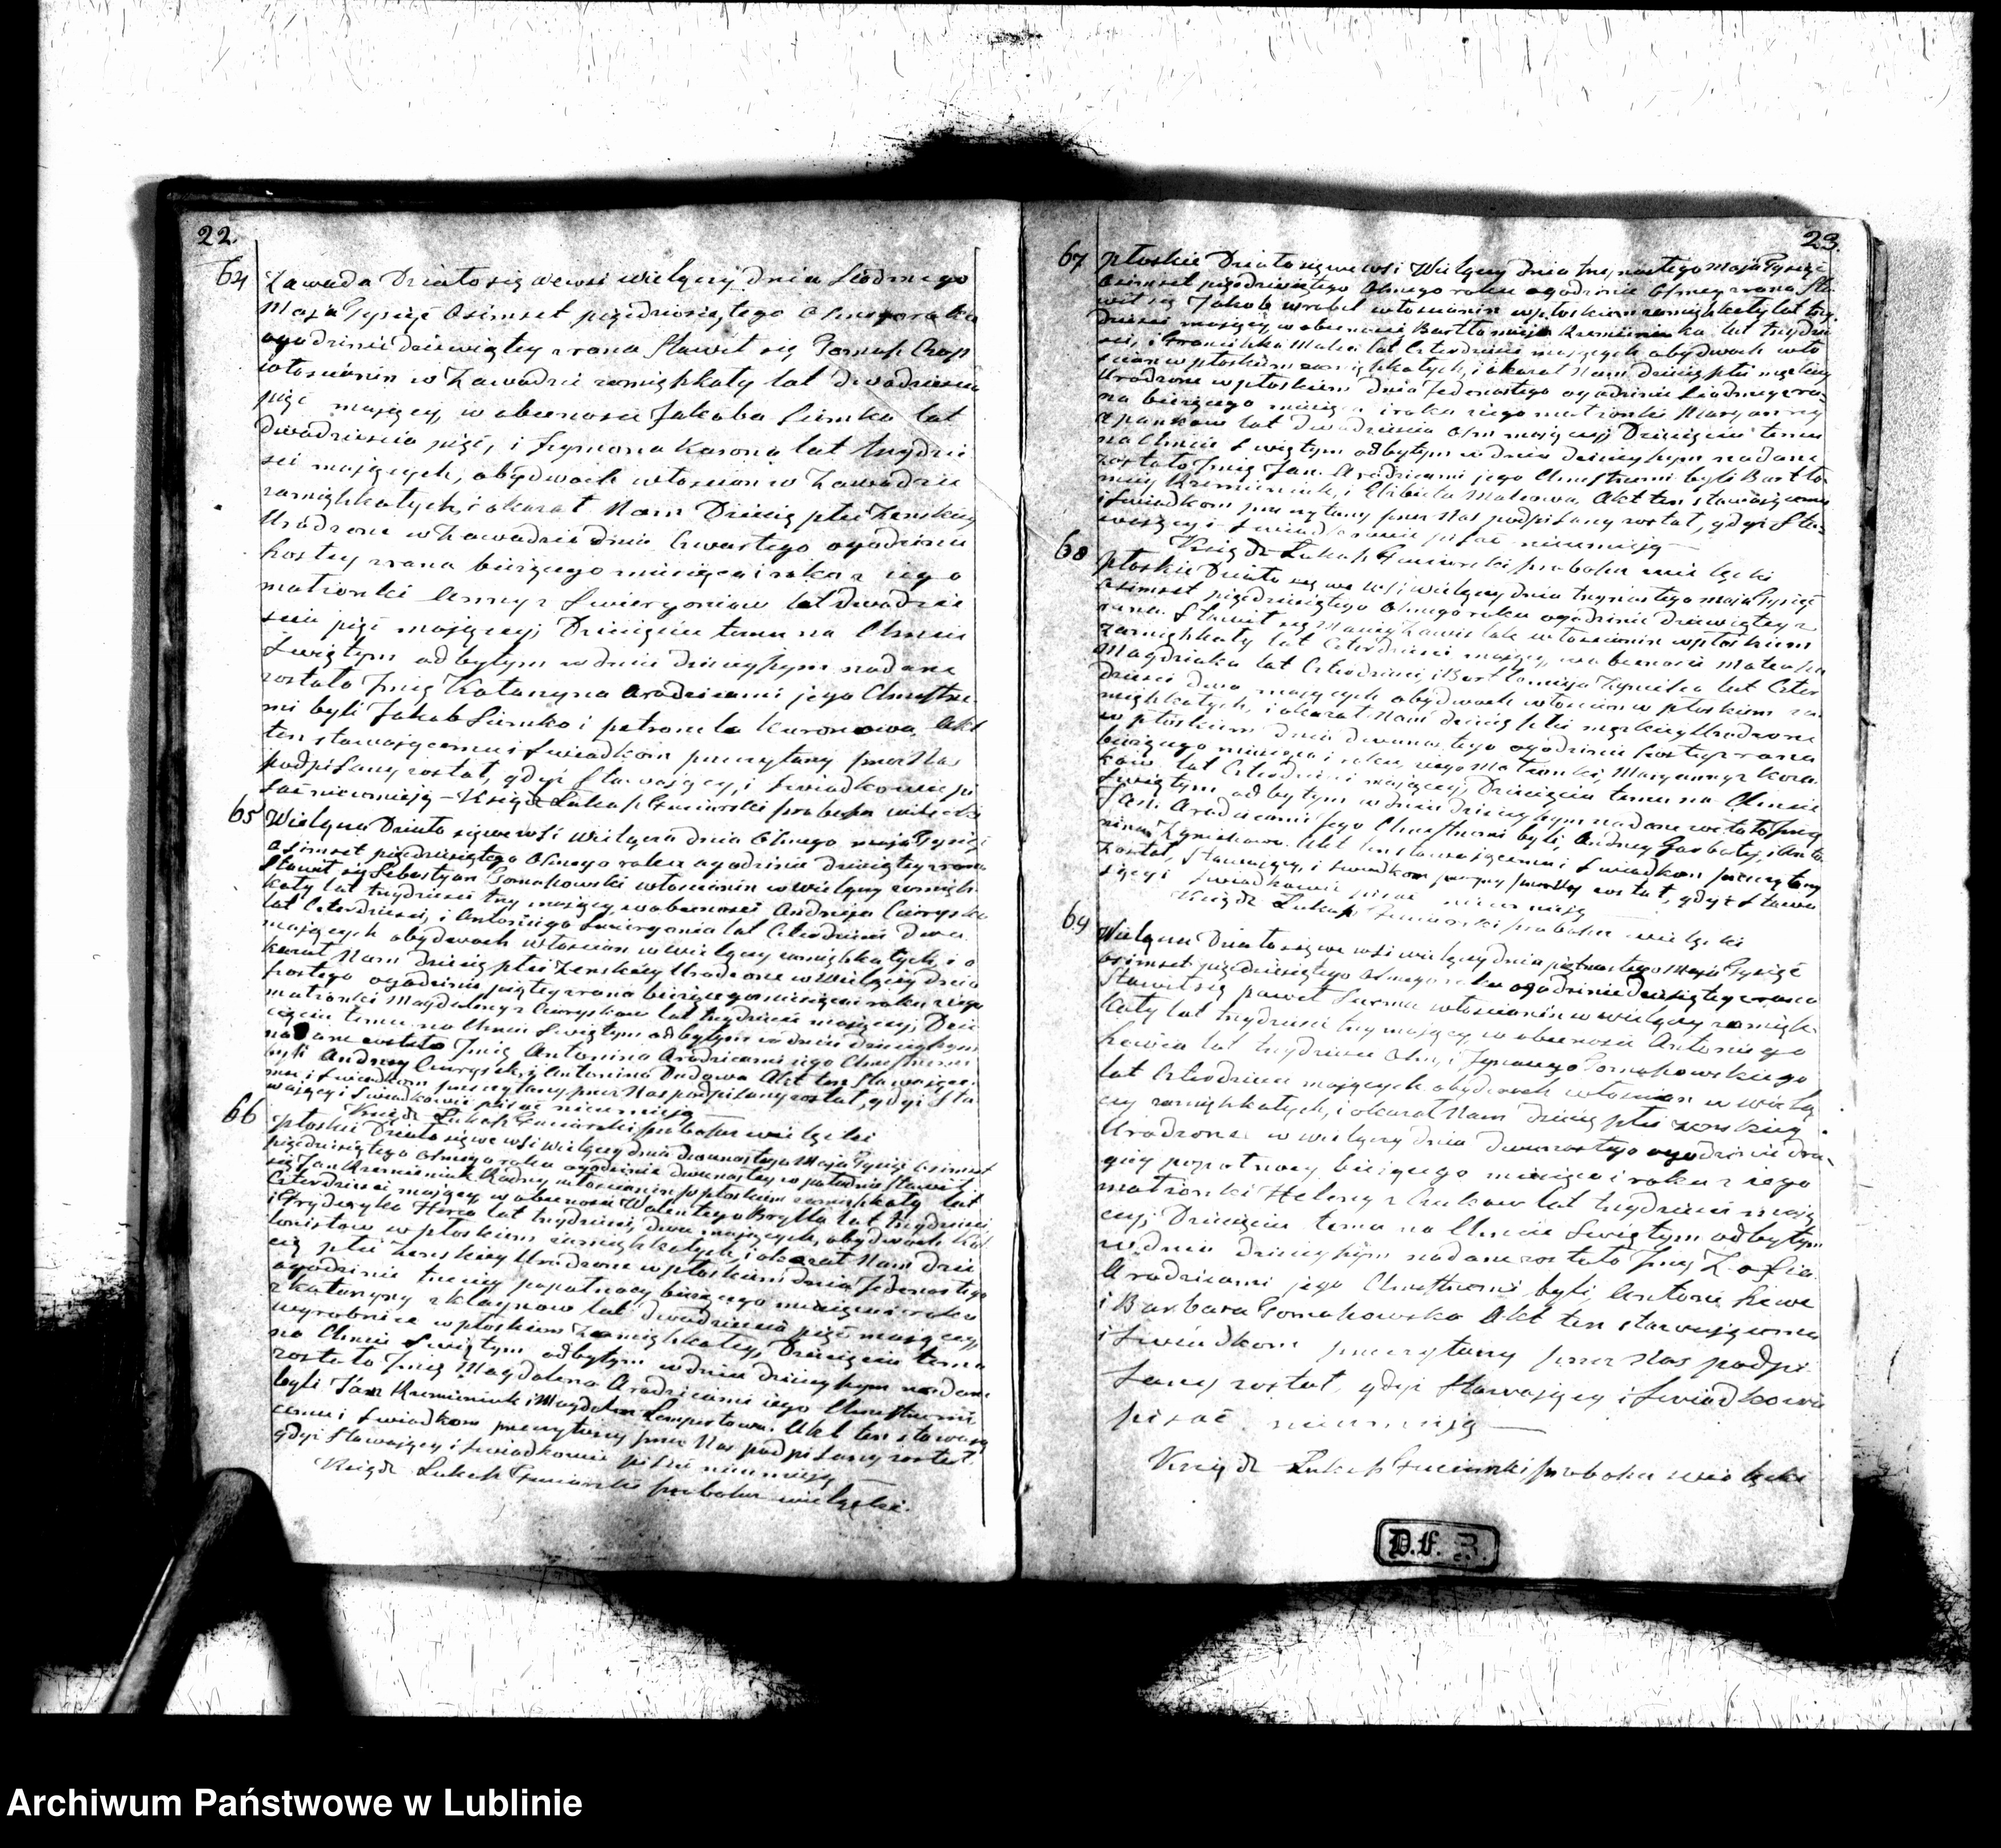 22.
64 Zawada Działo się wewsi wielgący dnia siódmego
Maja Tysiąc Osimset pięćdziesiątego Osmego roku
ogodzinie dziewiątey zrana Stawił się Tomasz Czop
włoscianin w Zawadzie zamięszkały lat dwadziescia
pięć mający, w obecnosci Jakoba Siemka lat
dwadziescia pięć, i Szymona Karona lat trzydzie
sci mających, obydwoch włoscian w Zawadzie
zamięszkałych, i okazał Nam Dziecię płci Zenskiey
Urodzone w Zawadzie dnia czwartego ogodzinie
szostey zrana bieżącego miesiąca i roku z iego
małżonki Anny z Swiergoniow lat dwadzie
scia pięć mającey; Dziecięciu temu na Chrzcie
Swiętym odbytym w dniu dzisieyszym nadane
zostało Imię Katarzyna a rodzicami jego Chrzestne
mi byli Jakob Siemko i petronela Karonowa, Akt
ten stawającemu i Swiadkom przeczytany przez Nas
podpisany został, gdyż Stawający, i Swiadkowie pi
sać nieumieją – Ksiądz Łukasz proboszcz wielącki
65 Wielącza Działo się wewsi Wielącza dnia Osmego maja Tysiąc
Osimset pięćdziesiątego Osmego roku ogodzinie dziewiątey zrana
Stawił się Sebestyan Tomaszewski włoscianin w Wielący zamięsz
kały lat trzydziesci trzy mający, w obecnosci Andrzeja
lat Czterdziesci, i Antoniego Swiergonia lat Czterdziesci dwa
mających obydwoch włoscian w Wielący zamięszkałych, i o
kazał Nam dziecię płci Zenskiey Urodzone w Wielący dnia
szostego ogodzinie piątey zrana bieżącego miesiąca i roku z iego
małżonki Magdaleny z lat trzydziesci mającey, Dzie
cięciu temu na Chrzcie Swiętym odbytym w dniu dzisieyszym
nadane zostało Imię Antonina a rodzicami iego Chrzestnemi
byli Andrzey i Antonina Dudowa Akt ten Stawające
mu i Swiadkom przeczytany przez Nas podpisany został, gdyż Sta
wający i Swiadkowie pisać nieumieją
Ksiądz Łukasz proboszcz wielącki
66 płoskie Działo się we wsi Wielący dnia Dwunastego Maja Tysiąc Osimset
pięćdziesiątego Osmego roku ogodzinie dwunastey w południe Stawił
się Jan Krzemieniuk Radny włoscianin w płoskim zamięszkały lat
Czterdziesci mający, w obecnosci Walentego Brylla lat trzydziesci
i Fryderyka Herca lat trzydziesci dwa mających, obydwoch kol
lonistow w płoskiem zamięszkałych, i okazał Nam dzie
cię płci Zenskiey Urodzone w płoskiem dnia Jedenastego
ogodzinie trzeciey popołnocy bieżącego miesiąca i roku
z Katarzyny z lat dwadziescia pięć mającey,
wyrobnice w płoskiem Zamięszkałey, Dziecięciu temu
na Chrzcie Swiętym odbytym w dniu dzisieyszym nadane
zostało Imię Magdalena a rodzicami iego Chrzestnemi
byli Jan Krzemieniuk i Magdalena Lampertowa. Akt ten stawają
cemu i Swiadkom przeczytany przez Nas podpisany został,
gdyż stawający i Swiadkowie pisać nieumieją
Ksiądz Łukasz proboszcz wielącki.
23.
67 płoskie Działo się we wsi Wielący dnia trzynastego Maja Tysiąc
Osimset pięćdziesiątego Osmego roku ogodzinie Osmey zrana Sta
wił się Jakob wrobel włoscianin w płoskiem zamięszkały lat trzy
dziesci mający, w obecnosci Bartłomieja Krzemieniuka lat trzydzie
sci, i Franciszka Malca lat Czterdziesci mających obydwoch wło
scian w płoskiem zamięszkałych, i okazał Nam dziecię płci męzkiey
Urodzone w płoskiem dnia Jedenastego ogodzinie Siodmey zra
na bieżącego miesiąca i roku z iego małżonki Maryanny
z pankow lat dwadziescia Osm mającey, Dziecięciu temu
na Chrzcie Swiętym odbytym w dniu dzisieyszym nadane
zostało Imię Jan. A rodzicami jego Chrzestnemi byli Bartło
miey Krzemieniuk, i Elżbieta Malcowa, Akt ten stawającemu
i Swiadkom przeczytany przez Nas podpisany został, gdyż Sta
wający i Swiadkowie pisać nieumieją
Ksiądz Łukasz proboszcz wielącki
68 płoskie Działo się we wsi Wielący dnia trzynastego maja Tysiąc
Osimset pięćdziesiątego Osmego roku ogodzinie dziewiątey z
rana. Stawił się Maciey Zawislak włoscianin w płoskiem
zamięszkały lat Czterdziesci mający, w obecnosci Mateusza
Magdziaka lat Czterdziesci, i Bartłomieja lat Czter
dziesci dwa mających obydwoch włoscian w płoskiem za
mięszkałych, i okazał Nam dziecię płci męzkiey Urodzone
w płoskiem dnia dwunastego ogodzinie szostey zrana
bieżącego miesiąca i roku, z iego Małżonki, Maryanny z
lat Czterdziesci mającey, Dziecięciu temu na Chrzcie
Swiętym odbytym w dniu dzisieyszym nadane zostało Imię
Jan. A rodzicami Jego Chrzestnemi byli, Andrzey Garbaty, i Anto
nina. Akt ten stawającemu i Swiadkom przeczytany
został, gdyż Stawa
jący i Swiadkowie pisać nieumieją
Ksiądz Łukasz proboszcz wielącki
69 Wielącza Działo się we wsi wielący dnia piętnastego Maja Tysiąc
osimset pięćdziesiątego Osmego roku ogodzinie Dziesiątey zrana
Stawił się paweł Surma włoscianin w wielący zamięsz
kały lat trzydziesci trzy mający, w obecnosci Antoniego
lat trzydziesci Osm, i Ignacego Tomaszewskiego
lat Czterdziesci mających obydwoch włoscian w wielą
cy zamięszkałych, i okazał Nam Dziecię płci żenskiey
Urodzone w wielący dnia dwunastego ogodzinie dru
giey popołnocy bieżącego miesiąca i roku z iego
małżonki Heleny z lat trzydziesci mają
cey; Dziecięciu temu na Chrzcie Swiętym odbytym
w dniu dzisieyszym nadane zostało Imię Zofia
A rodzicami jego Chrzestnemi byli, Antoni
i Barbara Tomaszewska Akt ten stawającemu
i Swiadkom przeczytany przez Nas podpi
sany został, gdyż Stawający i Swiadkowie
pisać nieumieją
Ksiądz Łukasz proboszcz wielącki
D.f. 3.
Archiwum Państwowe w Lublinie